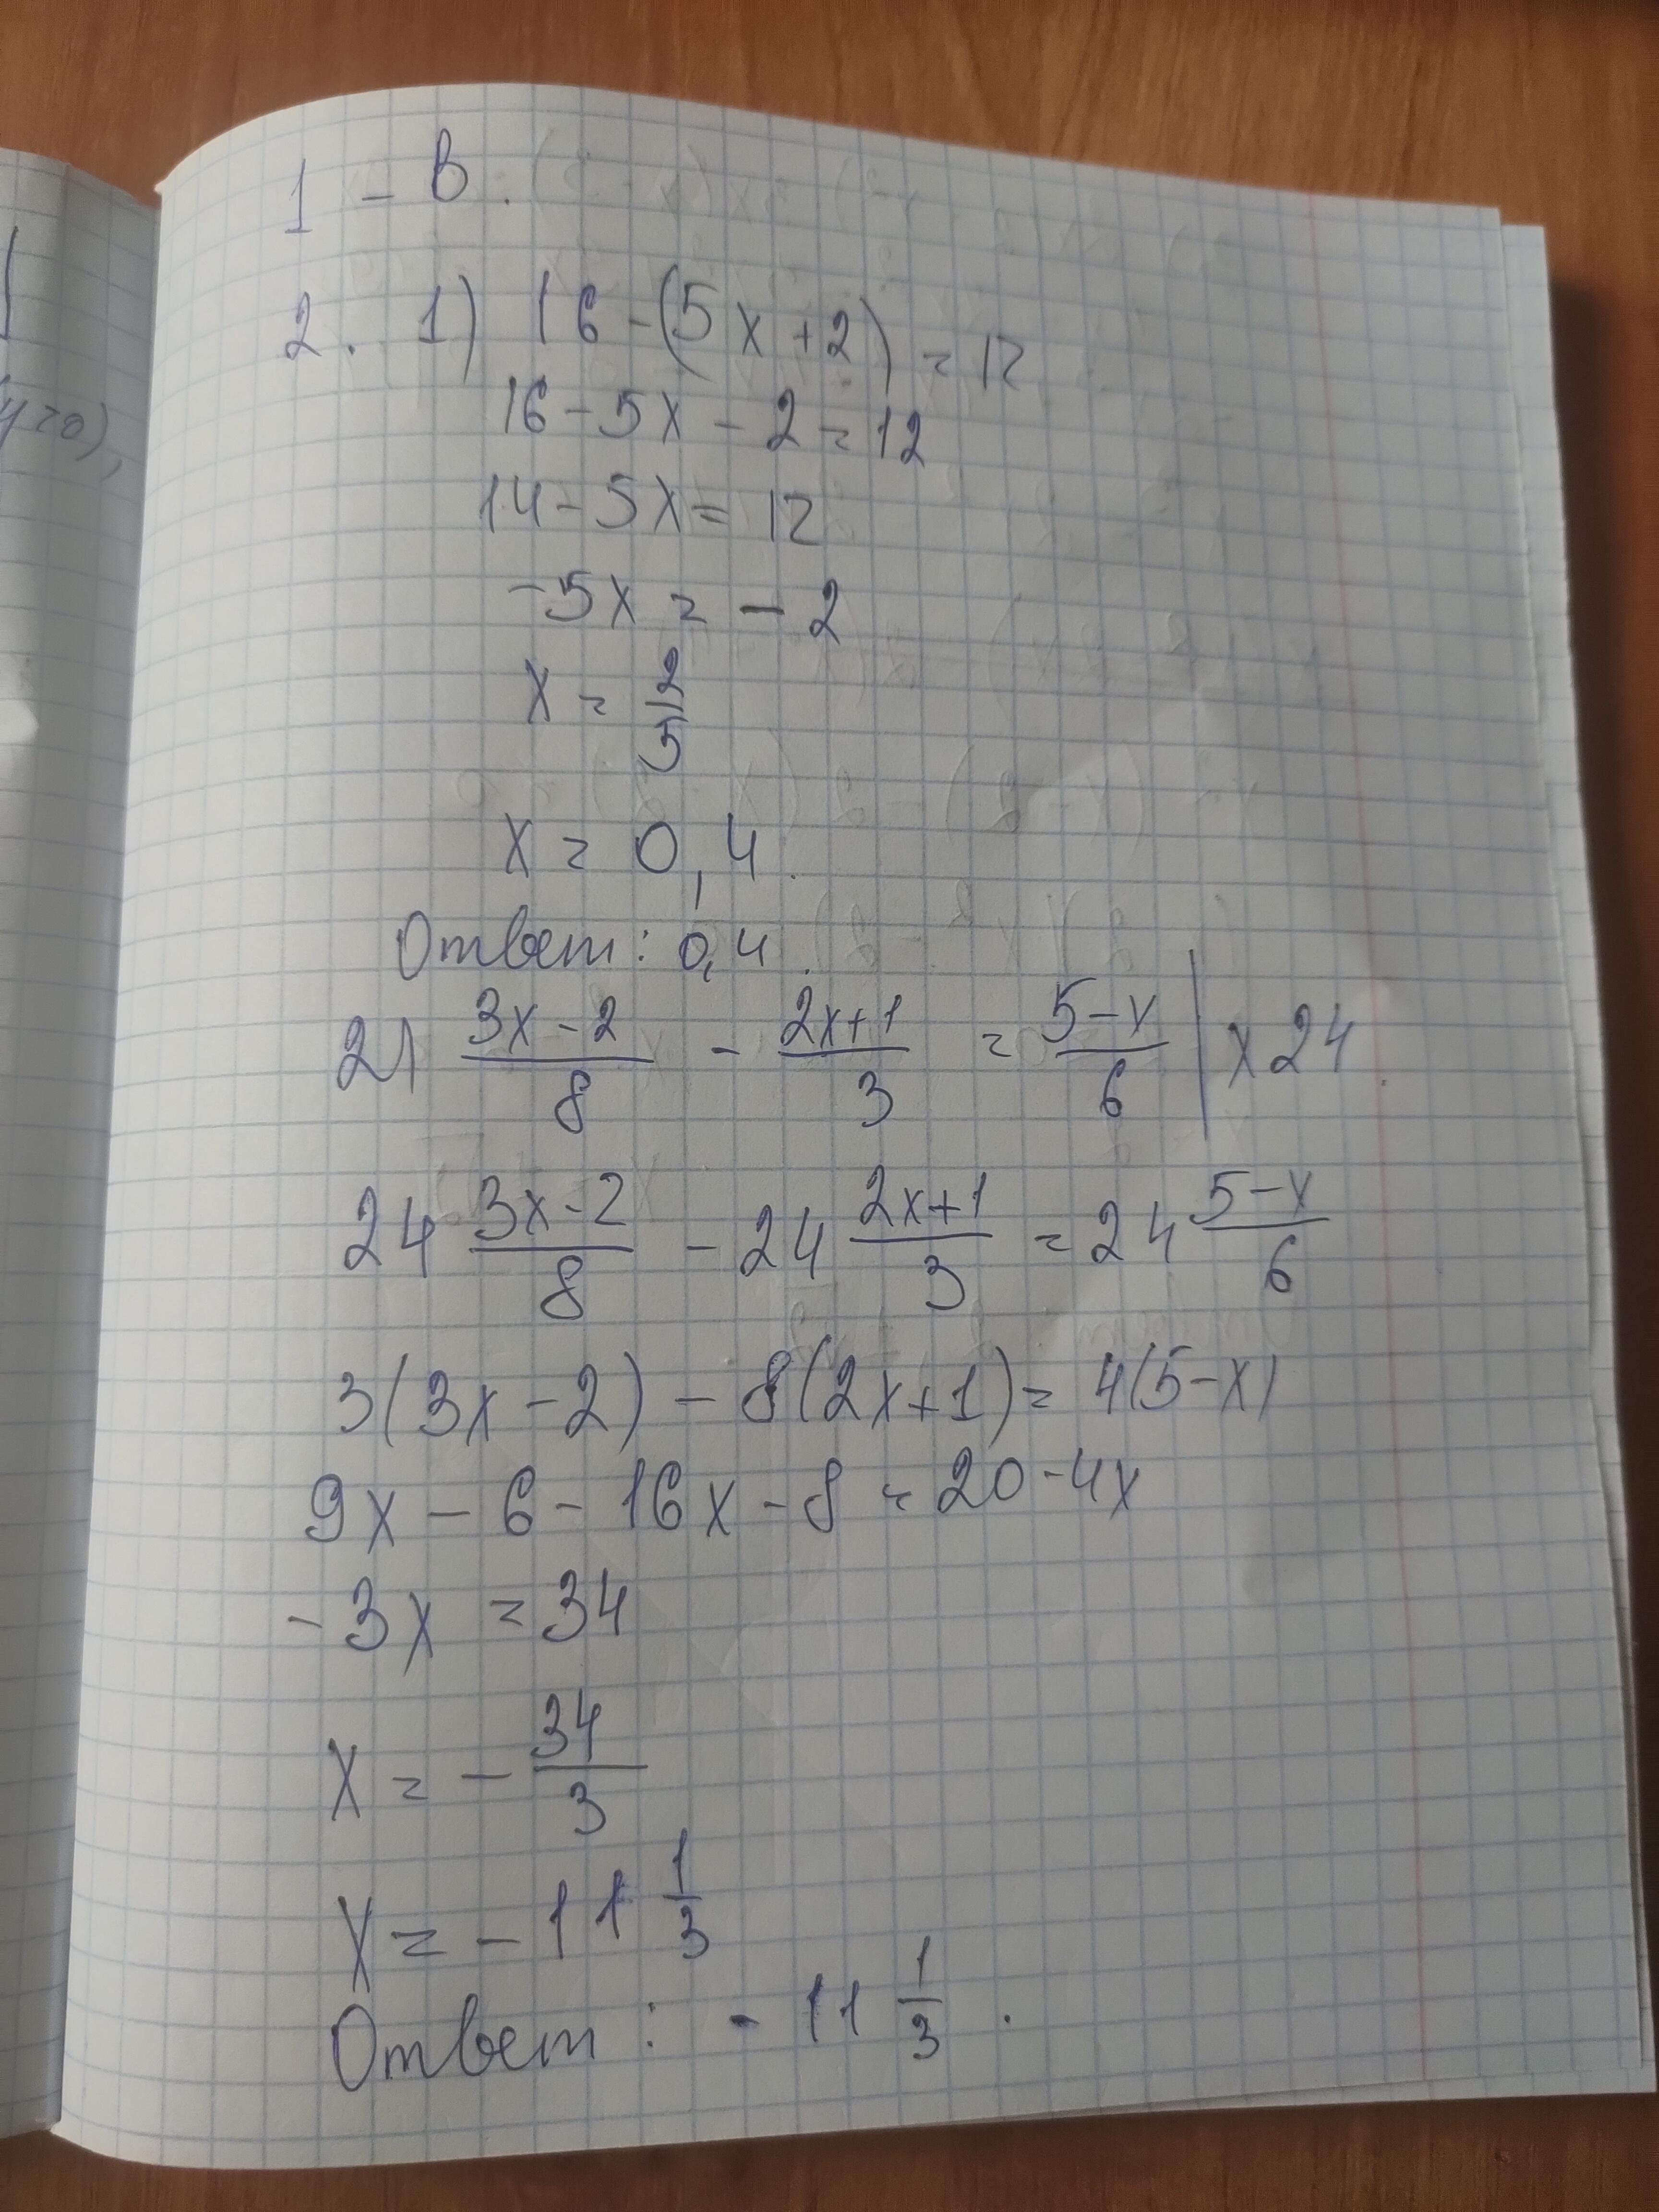 1 - В.
2. 1) 16-(5x+2)=12
16-5x-2=12
14-5x=12
-5x=-2
x=2/5
x=0,4.
Ответ: 0,4.
2) (3x-2)/8 - (2x+1)/3 = (5-x)/6 | x24
24 (3x-2)/8 - 24 (2x+1)/3 = 24 (5-x)/6
3(3x-2)-8(2x+1)=4(5-x)
9x-6-16x-8=20-4x
-3x=34
x=-34/3
x=-11 1/3
Ответ: -11 1/3.